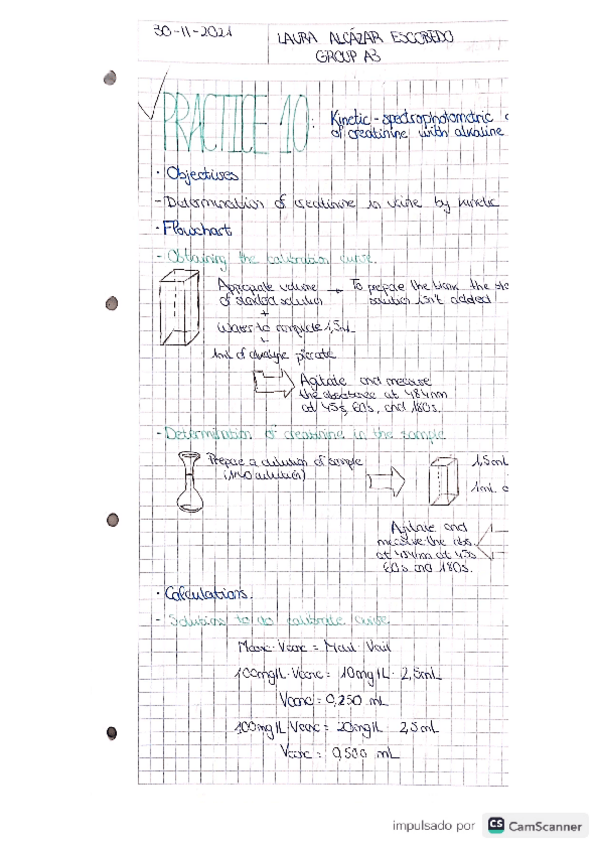 30-11-2021
LAURA ALCÁZAR ESCOBEDO
GROUP A3
PRACTICE 10:
Kinetic-spectrophotometric
of creatinine with alkaline
· Objectives
- Determination of creatinine in urine by kinetic
· Flowchart
- Obtaining the calibration curve.
Appropiate volume → To prepare the blank the sta
of standard solution
solution isn't added
+
Water to complete 1,5mL
+
1ml of alkaline picrate
Agitate and measure
the absorbance at 484nm
at 45s, 60s, and 180s.
- Determination of creatinine in the sample
Prepare a dilution of sample
dilution)
1,5mL
1mL
Agitate and
measure the abs.
at 484nm at 45s
60s and 180s.
· Calculations.
- Solutions to do calibrate curve.
Mconc · Vconc = Mdil · Vdil
100mg/L · Vconc = 10mg/L · 2,5mL
Vconc = 0,250 mL
100mg/L · Vconc = 20mg/L · 2,5mL
Vconc = 0,500 mL
impulsado por CS CamScanner